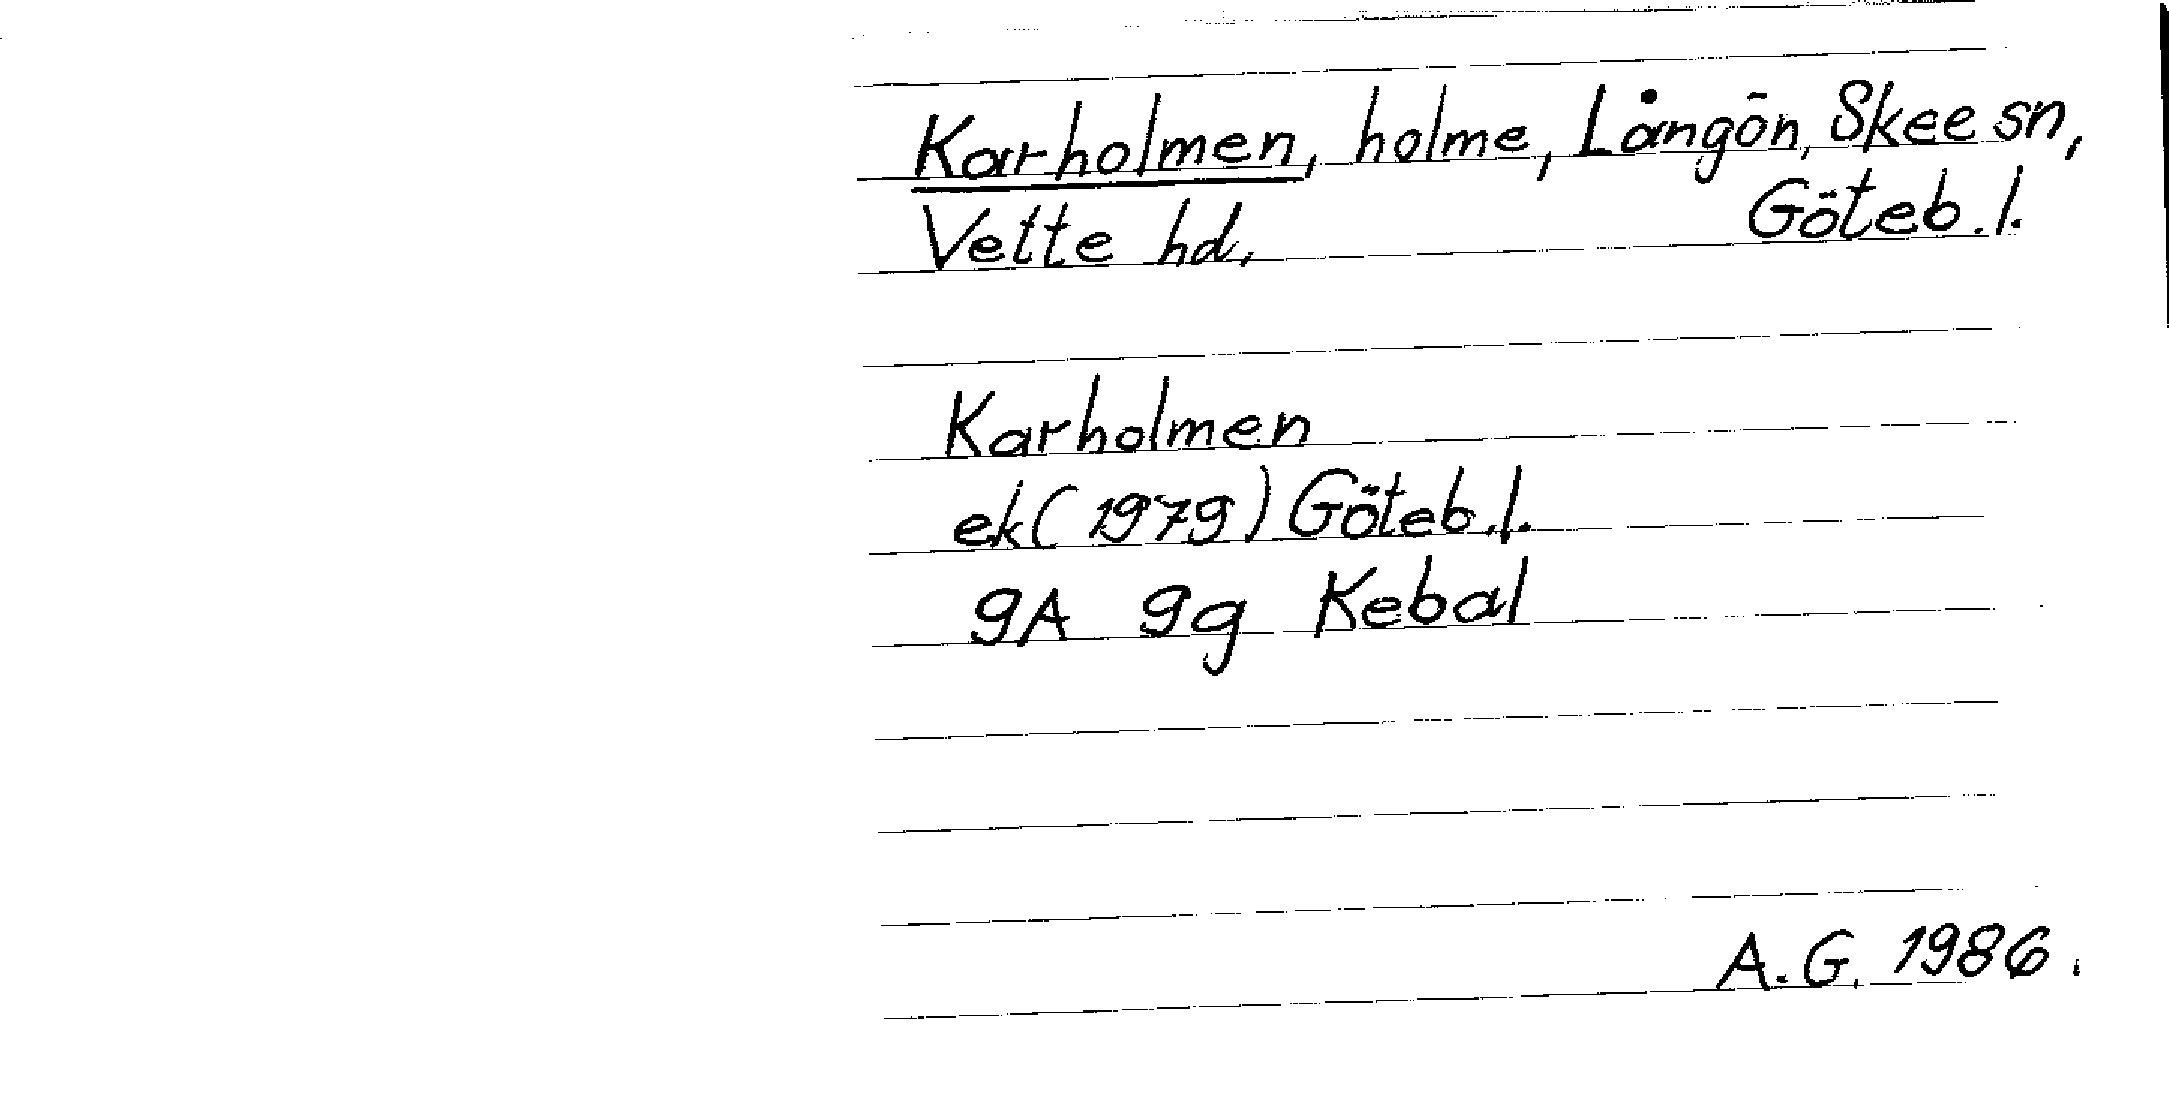 Karholmen, holme, Långön, Skee sn,
Vette hd, Göteb.l.
Karholmen
ek(1979) Göteb.l.
9A 9g Kebal
A.G. 1986.